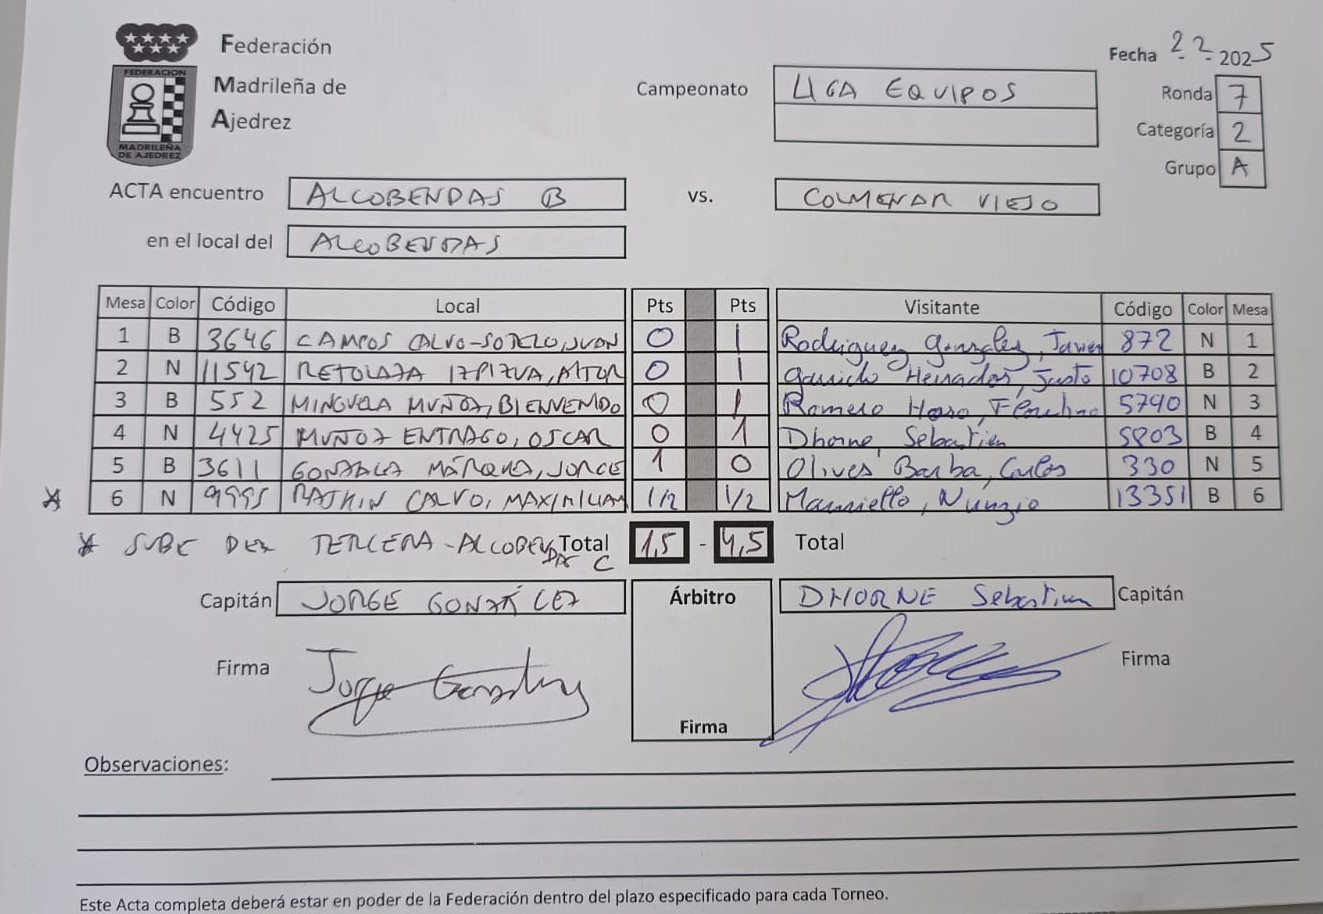 Federación
Madrileña de
Ajedrez
FEDERACION
MADRILEÑA
DE AJEDREZ
Fecha 22-2-2025
Campeonato LIGA EQUIPOS
Ronda 7
Categoría 2
Grupo A
ACTA encuentro ALCOBENDAS B vs. COLMENAR VIEJO
en el local del ALCOBENDAS
Mesa Color Código Local Pts Pts Visitante Código Color Mesa
1 B 3646 CAMPOS CALVO-SOTELO, JUAN 0 1 Rodriguez Gonzalez, Javier 872 N 1
2 N 11542 RETOLAZA IZPIZUA, AITOR 0 1 Garrido Justo 10708 B 2
3 B 552 MINGUELA MUÑOZ, BIENVENIDO 0 1 Romero 5790 N 3
4 N 4425 MUÑOZ ENTRAGO, OSCAR 0 1 Dhorne, Sebastien 5803 B 4
5 B 3611 GONZALEZ MÁRQUEZ, JORGE 1 0 Olives Barba, Carlos 330 N 5
* 6 N 9995 CALVO, MAXIMILIAN 1/2 1/2 Manniello, Nunzio 13351 B 6
* SUBE DE TERCERA - ALCOBENDAS C Total 1,5 - 4,5 Total
Capitán JORGE GONZÁLEZ Árbitro DHORNE Sebastien Capitán
Firma Jorge González Firma
Firma
Observaciones:
Este Acta completa deberá estar en poder de la Federación dentro del plazo especificado para cada Torneo.